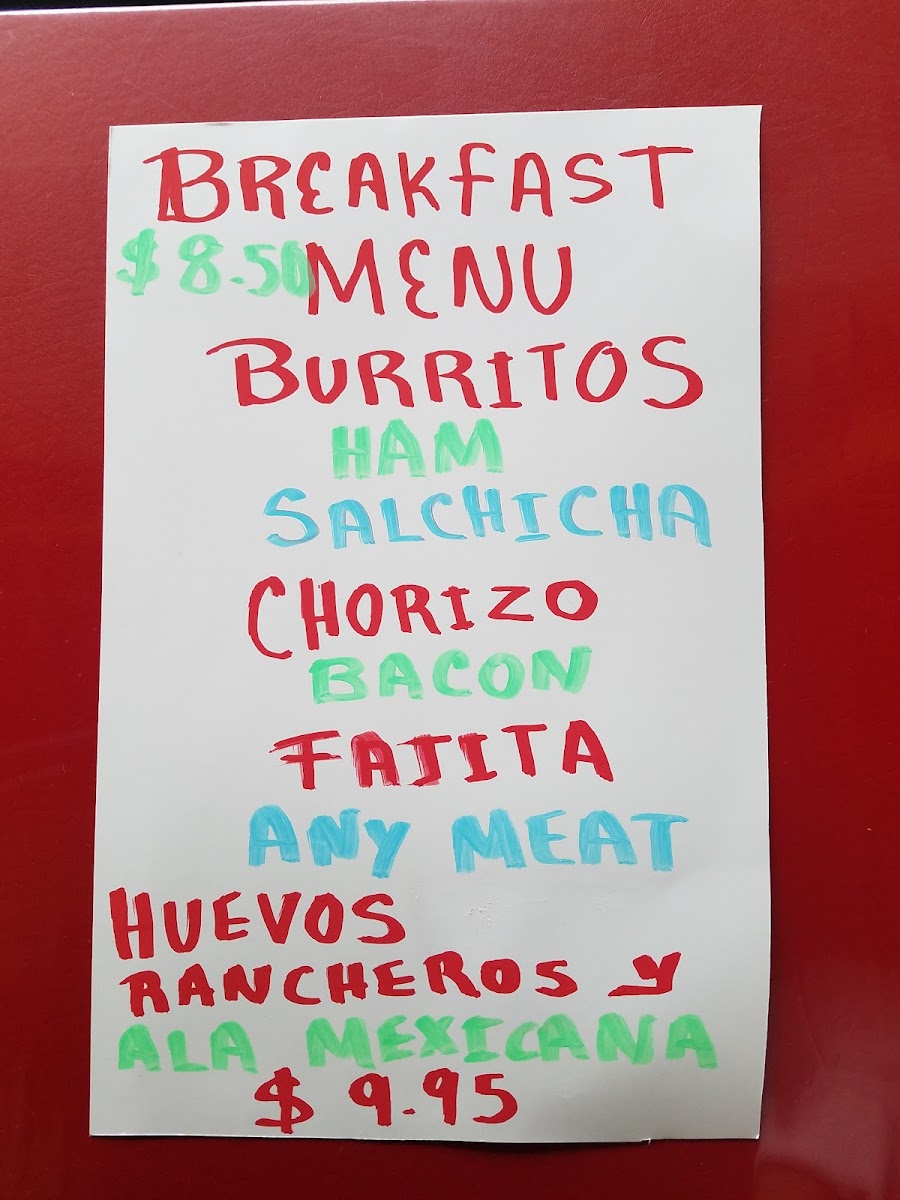 BREAKFAST
$8.50 MENU
BURRITOS
HAM
SALCHICHA
CHORIZO
BACON
FAJITA
ANY MEAT
HUEVOS
RANCHEROS Y
ALA MEXICANA
$9.95